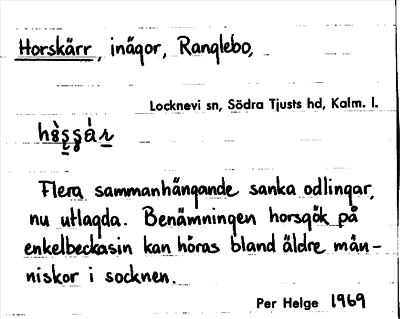 Horskärr, inägor, Ranglebo,
Locknevi sn, Södra Tjusts hd, Kalm. l.
Flera sammanhängande sanka odlingar,
nu utlagda. Benämningen horsgök på
enkelbeckasin kan höras bland äldre män-
niskor i socknen.
Per Helge 1969